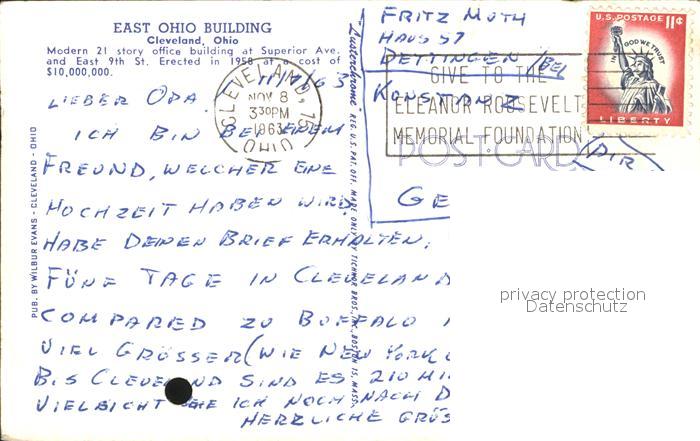 EAST OHIO BUILDING
Cleveland, Ohio
Modern 21 story office building at Superior Ave.
and East 9th St. Erected in 1958 at a cost of
$10,000,000.
PUB. BY WILBUR EVANS - CLEVELAND - OHIO
LIEBER OPA.
ICH BIN BEI
FREUND, WELCHER EINE
HOCHZEIT HABEN WIRD.
HABE DEINEN BRIEF ERHALTEN.
FÜNF TAGE IN CLEVELAND
COMPARED ZU BUFFALO
VIEL GRÖSSER (WIE NEW YORK
BIS CLEVELAND SIND ES 210
VIELEICHT ICH NOCH NACH
HERZLICHE
CLEVELAND, 15
NOV 8
330PM
1963
OHIO
"Lusterchrome" REG. U.S. PAT. OFF. MADE ONLY BY TICHNOR BROS., INC., BOSTON 15, MASS.
FRITZ MUTH
HAUS 57
DETTINGEN / BEI
KONSTANZ
GIVE TO THE
ELEANOR ROOSEVELT
MEMORIAL FOUNDATION
POST CARD
(AIR
GE
U.S. POSTAGE 11¢
IN GOD WE TRUST
LIBERTY
privacy protection
Datenschutz